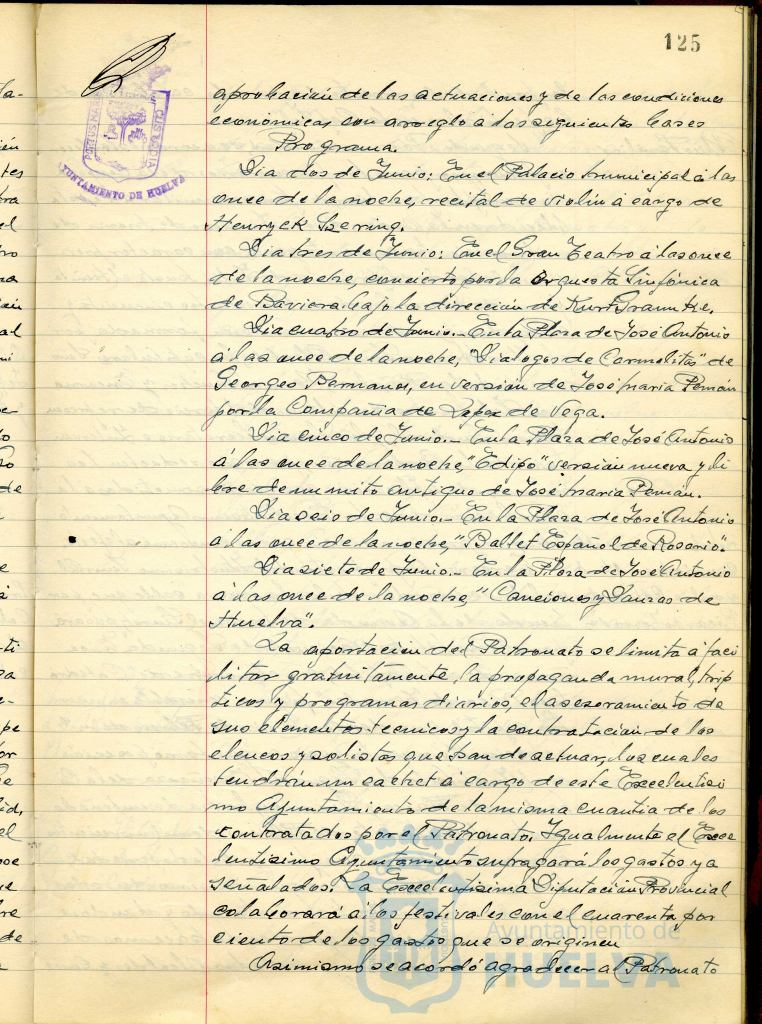 125
PORTUS MARIS
CUSTODIA
AYUNTAMIENTO DE HUELVA
aprobación de las actuaciones y de las condiciones
económicas con arreglo á las siguientes bases
Programa.
Dia dos de Junio: En el Palacio municipal á las
once de la noche, recital de violin á cargo de
Henryck Szering.
Dia tres de Junio: En el Gran Teatro á las once
de la noche, concierto por la Orquesta Sinfónica
de Baviera bajo la dirección de Kurt Graunke.
Dia cuatro de Junio.- En la Plaza de José Antonio
á las once de la noche, "Dialogos de Carmelitas" de
Georges Bernanos, en versión de José maria Pemán
por la Compañia de Lopez de Vega.
Dia cinco de Junio.- En la Plaza de José Antonio
á las once de la noche, "Edipo" versión nueva y li
bre de un mito antiguo de José maria Pemán.
Dia seis de Junio.- En la Plaza de José Antonio
á las once de la noche, "Ballet Español de Rosario".
Dia siete de Junio.- En la Plaza de José Antonio
á las once de la noche, "Canciones y Danzas de
Huelva".
La aportación del Patronato se limita á faci
litar gratuitamente, la propaganda mural, trip
ticos y programas diarios, el asesoramiento de
sus elementos tecnicos y la contratación de los
elencos y solistas que han de actuar, los cuales
tendrán un cachet á cargo de este Excelentisi
mo Ayuntamiento de la misma cuantia de los
contratados por el Patronato. Igualmente el Exce
lentisimo Ayuntamiento sufragará los gastos ya
señalados. La Excelentisima Diputación Provincial
colaborará á los festivales con el cuarenta por
ciento de los gastos que se originen
Asimismo se acordó agradecer al Patronato
Ayuntamiento de
HUELVA